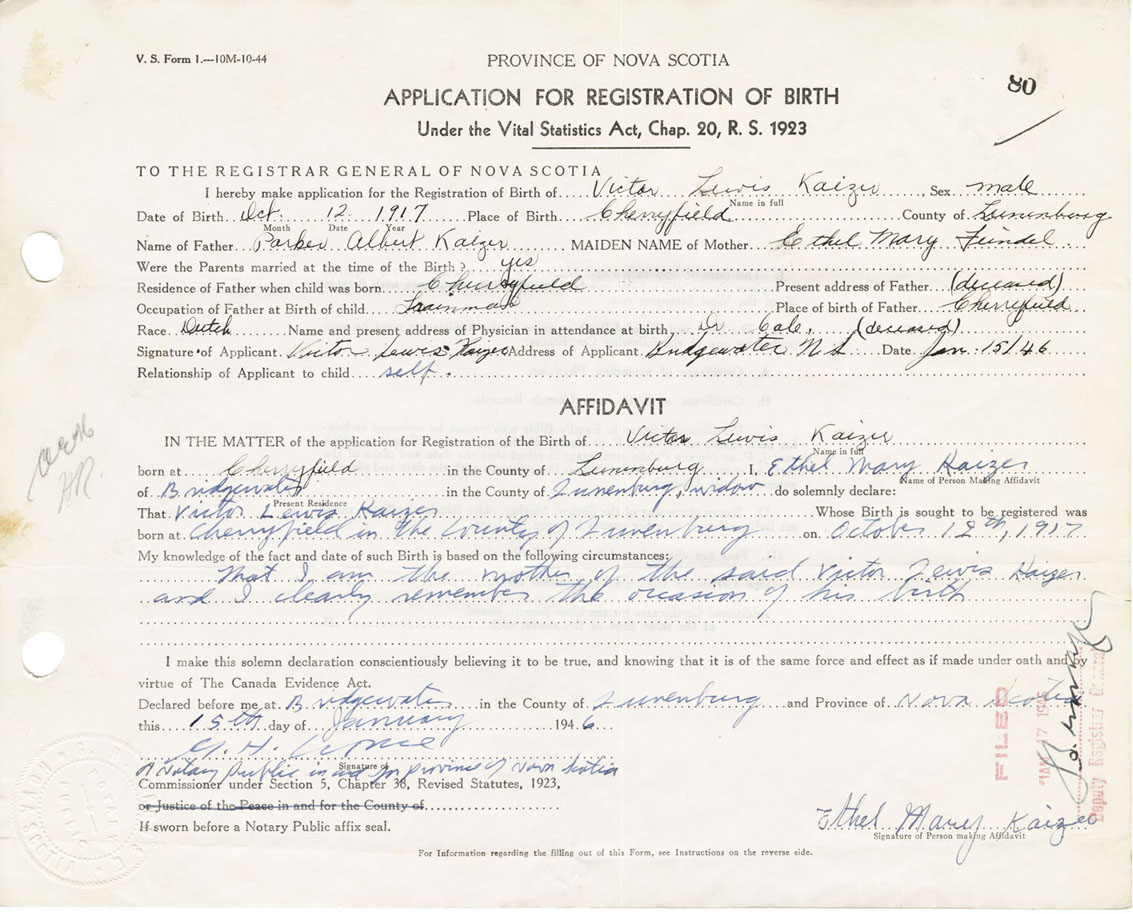 V. S. Form 1.—10M-10-44
PROVINCE OF NOVA SCOTIA
80
APPLICATION FOR REGISTRATION OF BIRTH
Under the Vital Statistics Act, Chap. 20, R. S. 1923
TO THE REGISTRAR GENERAL OF NOVA SCOTIA
I hereby make application for the Registration of Birth of Victor Lewis Kaizer, Sex male
Name in full
Date of Birth Oct. 12 1917 Place of Birth Cherryfield County of Lunenburg
Month Date Year
Name of Father Parker Albert Kaizer MAIDEN NAME of Mother Ethel Mary Feindel
Were the Parents married at the time of the Birth? yes
Residence of Father when child was born Cherryfield Present address of Father (deceased)
Occupation of Father at Birth of child Trainman Place of birth of Father Cherryfield
Race Dutch Name and present address of Physician in attendance at birth, Dr Cole, (deceased)
Signature of Applicant Victor Lewis Kaizer Address of Applicant Bridgewater N S Date Jan. 15/46
Relationship of Applicant to child self.
AFFIDAVIT
IN THE MATTER of the application for Registration of the Birth of Victor Lewis Kaizer
Name in full
born at Cherryfield in the County of Lunenburg I, Ethel Mary Kaizer
Name of Person Making Affidavit
of Bridgewater in the County of Lunenburg, widow do solemnly declare:
Present Residence
That Victor Lewis Kaizer Whose Birth is sought to be registered was
born at Cherryfield in the County of Lunenburg on October 12th, 1917
My knowledge of the fact and date of such Birth is based on the following circumstances:
That I am the mother of the said Victor Lewis Kaizer
and I clearly remember the occasion of his birth
I make this solemn declaration conscientiously believing it to be true, and knowing that it is of the same force and effect as if made under oath and by
virtue of The Canada Evidence Act.
Declared before me at Bridgewater in the County of Lunenburg and Province of Nova Scotia
this 15th day of January 1946
Signature of
A Notary Public in and for province of Nova Scotia
Commissioner under Section 5, Chapter 38, Revised Statutes, 1923,
or Justice of the Peace in and for the County of
If sworn before a Notary Public affix seal.
Ethel Mary Kaizer
Signature of Person making Affidavit
For Information regarding the filling out of this Form, see Instructions on the reverse side.
FILED
Deputy Registrar General